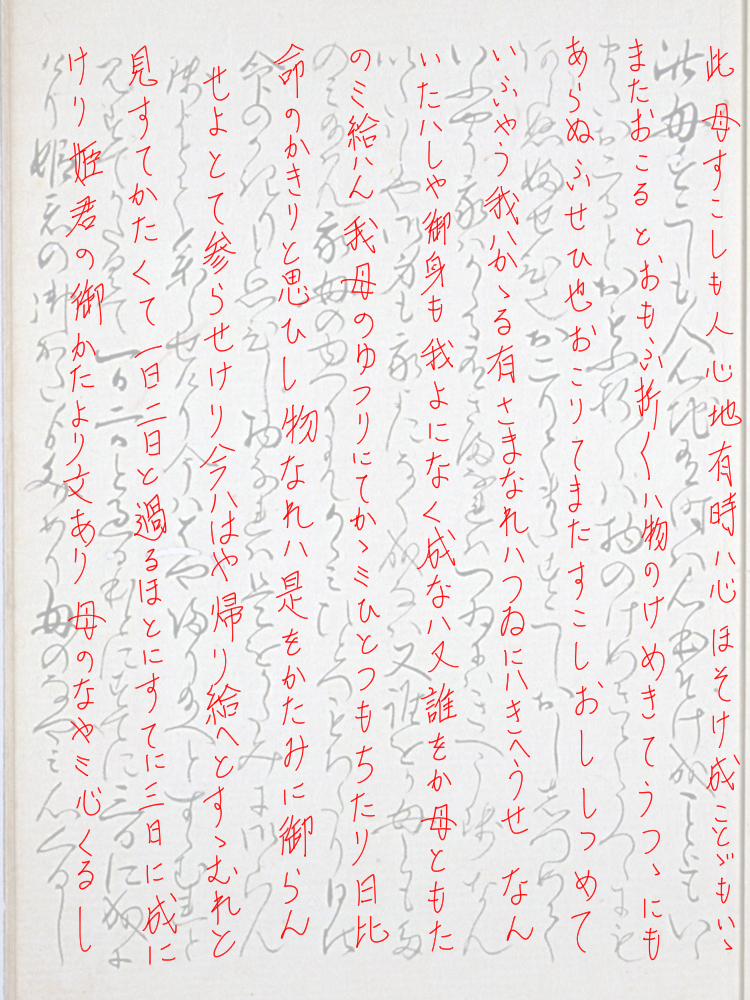 此母すこしも人心地有時ハ心ほそけ成ことゞもいゝ
またおこるとおもふ折〱ハ物のけめきてうつゝにも
あらぬふせひ也おこりてまたすこしおししつめて
いふやう我ハかゝる有さまなれハつゐにハきへうせなん
いたハしや御身も我よになく成なハ又誰をか母ともた
のミ給ハん我母のゆつりにてかゝミひとつもちたり日比
命のかきりと思ひし物なれハ是をかたみに御らん
せよとて参らせけり今ハはや帰り給へとすゝむれと
見すてかたくて一日二日と過るほとにすてに三日に成に
けり姫君の御かたより文あり母のなやミ心くるし